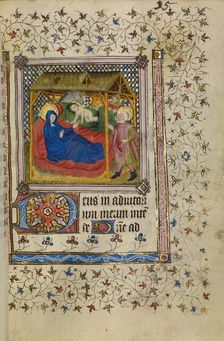 Deus in adiutor
ium meum inte
de Dñe ad